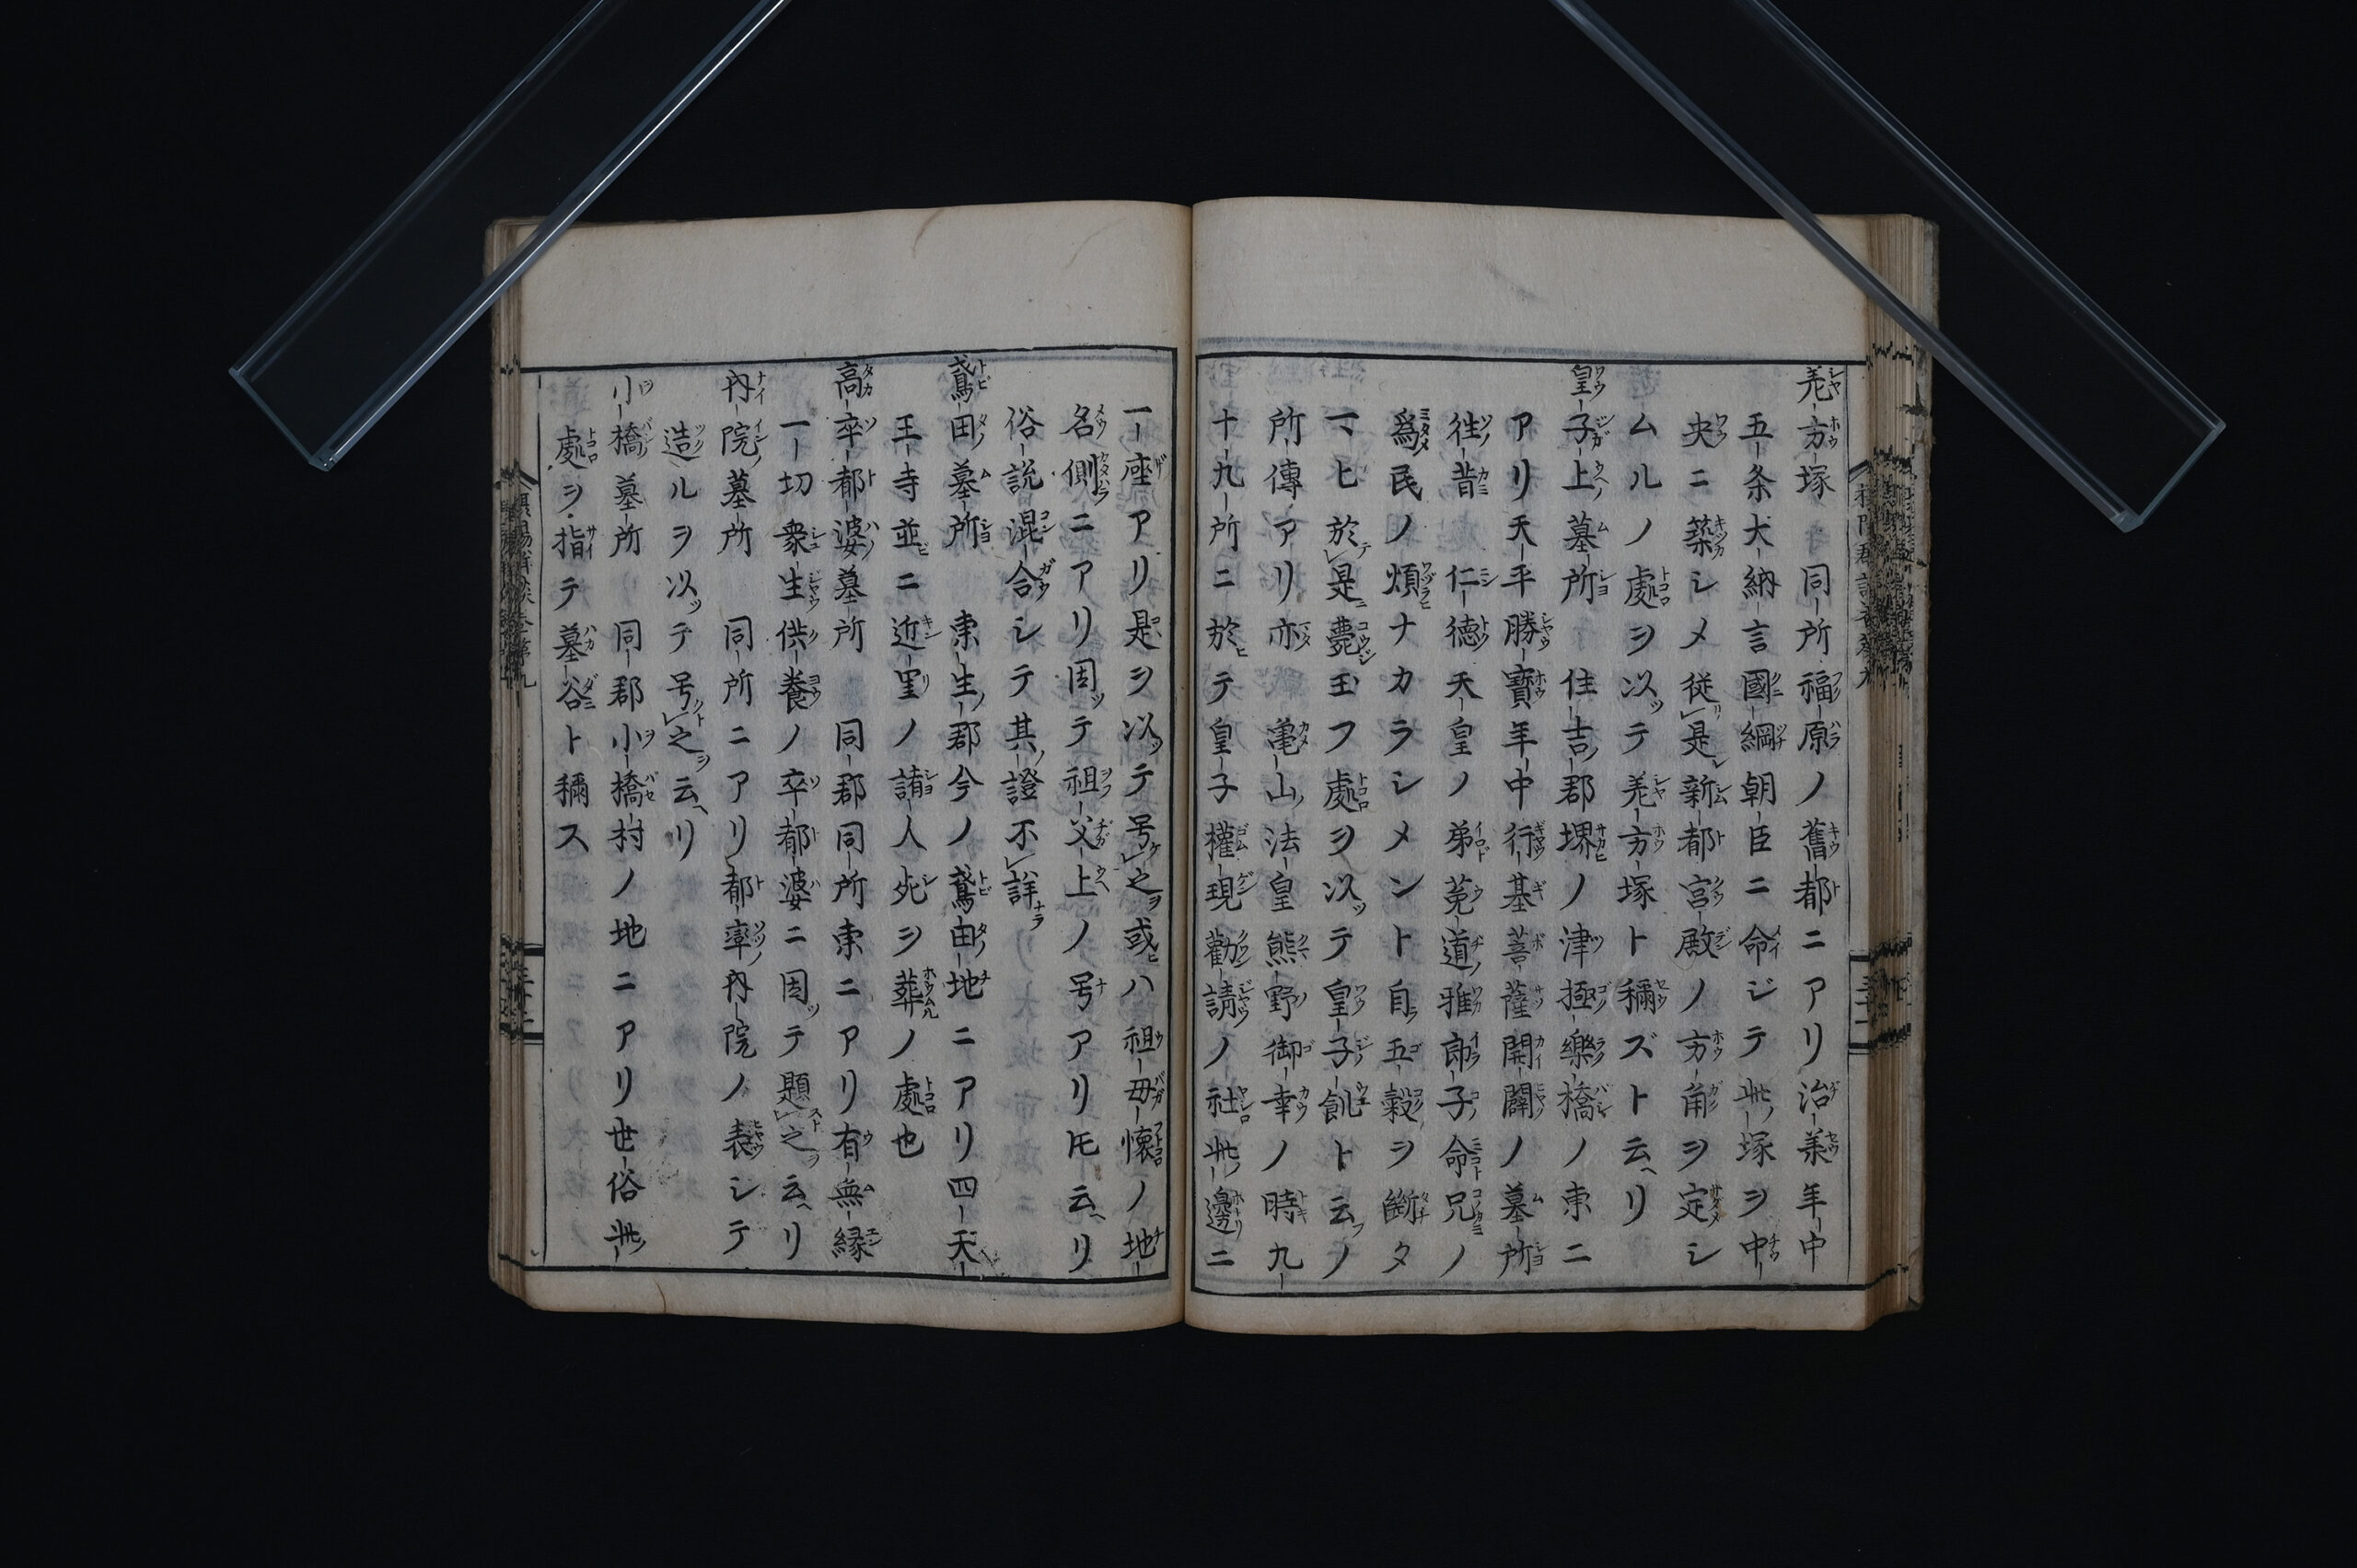 羗方塚　同所福原ノ舊都ニアリ治美年中
五条大納言國綱朝臣ニ命ジテ此塚ヲ中
央ニ築シメ従是新都宮殿ノ方角ヲ定シ
ムルノ處ヲ以テ羗方塚ト稱ズト云リ
皇子上墓所　住吉郡堺ノ津極樂橋ノ東ニ
アリ天平勝寶年中行基菩薩開闢ノ墓所
徃昔仁徳天皇ノ弟菟道雅郎子命兄ノ
爲民ノ煩ナカラシメント自五穀ヲ斷タ
マヒ於是薨玉フ處ヲ以テ皇子飢ト云ノ
所傳アリ亦亀山法皇熊野御幸ノ時九
十九所ニ於テ皇子權現勸請ノ社此邊ニ
一座アリ是ヲ以テ号之或ハ祖母懐ノ地
名側ニアリ因テ祖父上ノ号アリ𪜈云リ
俗説混合シテ其證不詳
鳶田墓所　東生郡今ノ鳶田地ニアリ四天
王寺並ニ近里ノ諸人死ヲ葬ノ處也
高卒都婆墓所　同郡同所東ニアリ有無縁
一切衆生供養ノ卒都婆ニ因テ題之云リ
内院墓所　同所ニアリ都率内院ノ表シテ
造ルヲ以テ号之云リ
小橋墓所　同郡小橋村ノ地ニアリ世俗此
處ヲ指テ墓谷ト稱ス